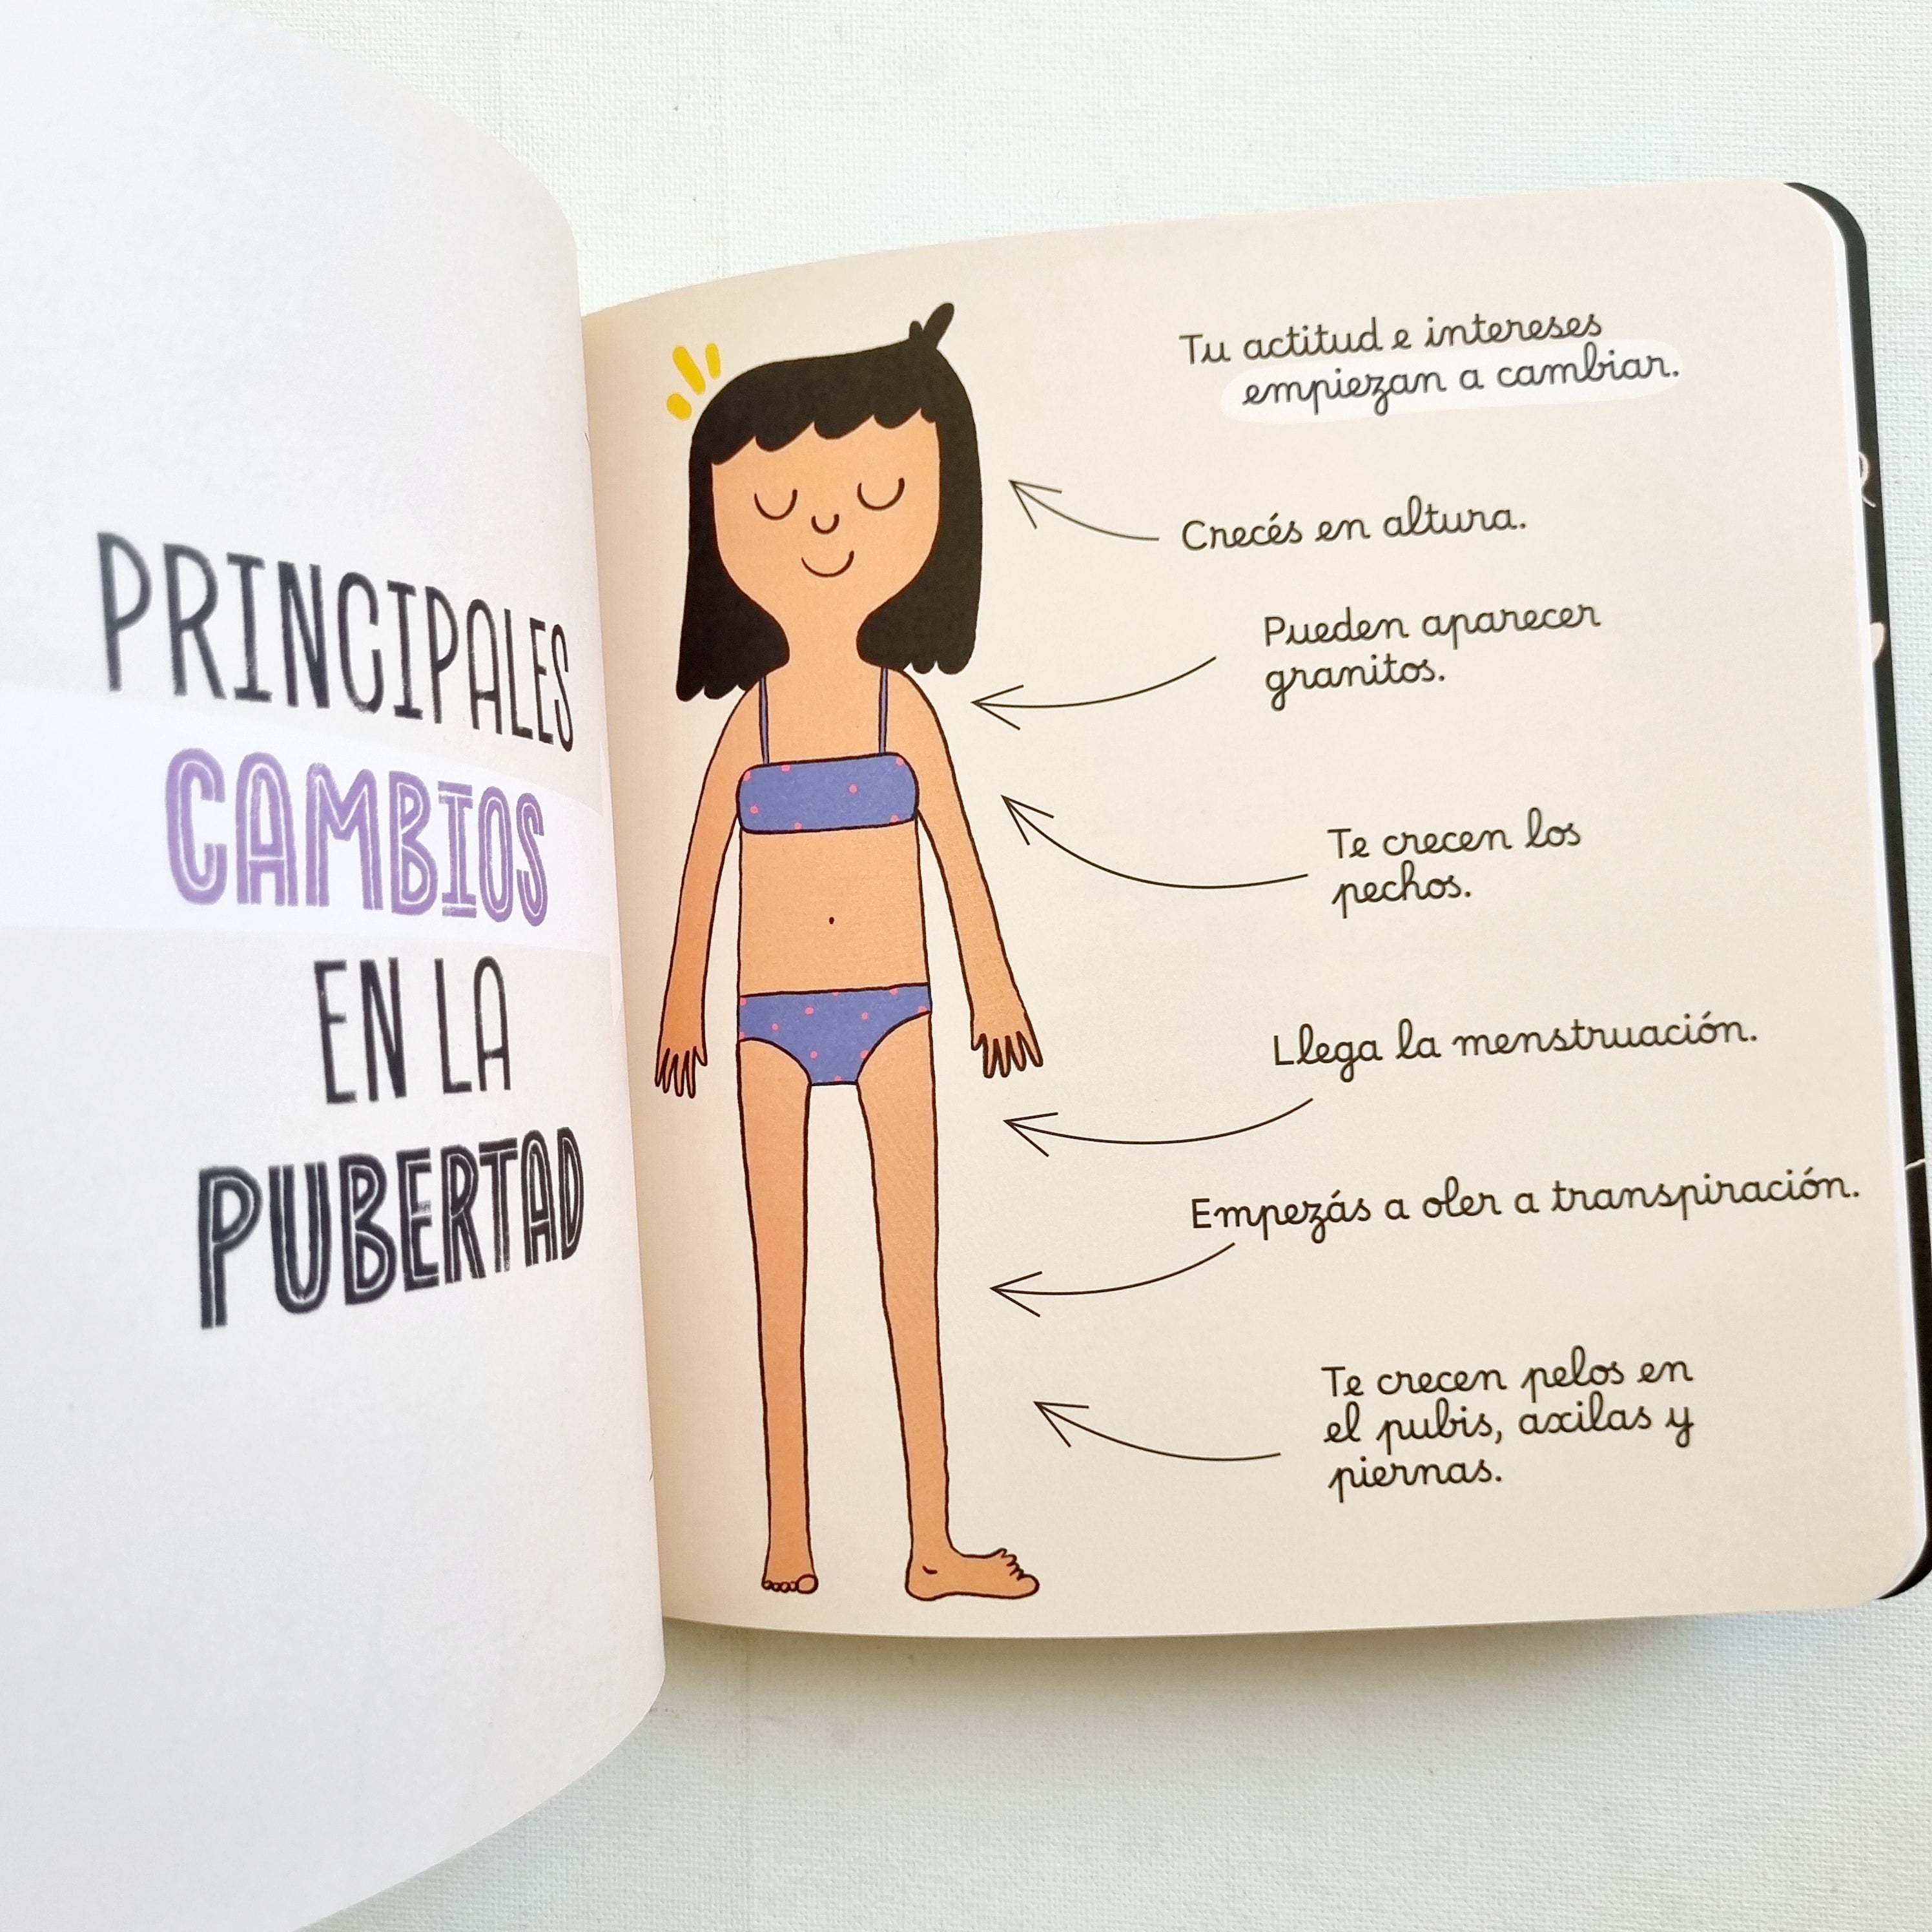 PRINCIPALES
CAMBIOS
EN LA
PUBERTAD
Tu actitud e intereses
empiezan a cambiar.
Crecés en altura.
Pueden aparecer
granitos.
Te crecen los
pechos.
Llega la menstruación.
Empezás a oler a transpiración.
Te crecen pelos en
el pubis, axilas y
piernas.